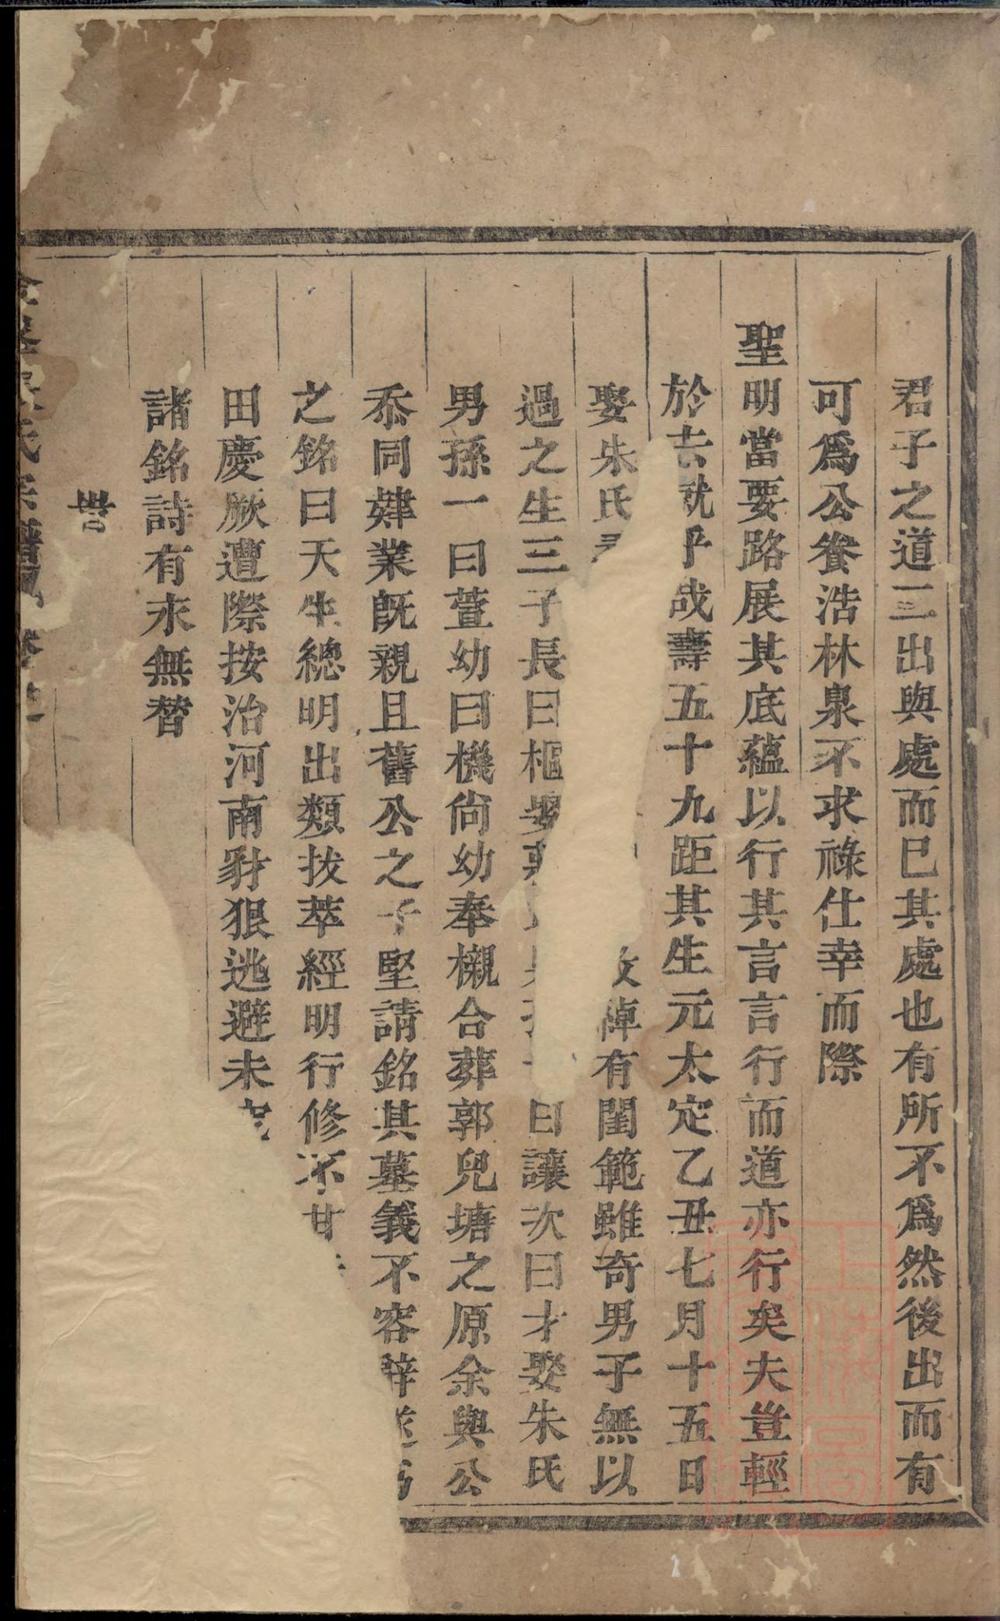 君子之道二出與處而已其處也有所不爲然後出而有
可爲公養浩林泉不求祿仕幸而際
聖明當要路展其底蘊以行其言言行而道亦行矣夫豈輕
於去就乎哉壽五十九距其生元太定乙丑七月十五日
娶朱氏有閨範雖奇男子無以
過之生三子長曰樞娶曰讓次曰才娶朱氏
男孫一曰萱幼曰機尙幼奉櫬合葬郭兒塘之原余與公
忝同嬅業旣親且舊公之子堅請銘其墓義不容辭遂爲
之銘曰天生總明出類拔萃經明行修不
田慶厥遭際按治河南豺狠逃避未
諸銘詩有永無替
氏宗譜